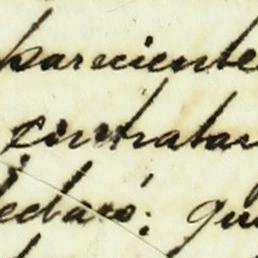 pareciente
contratar
declaró: que